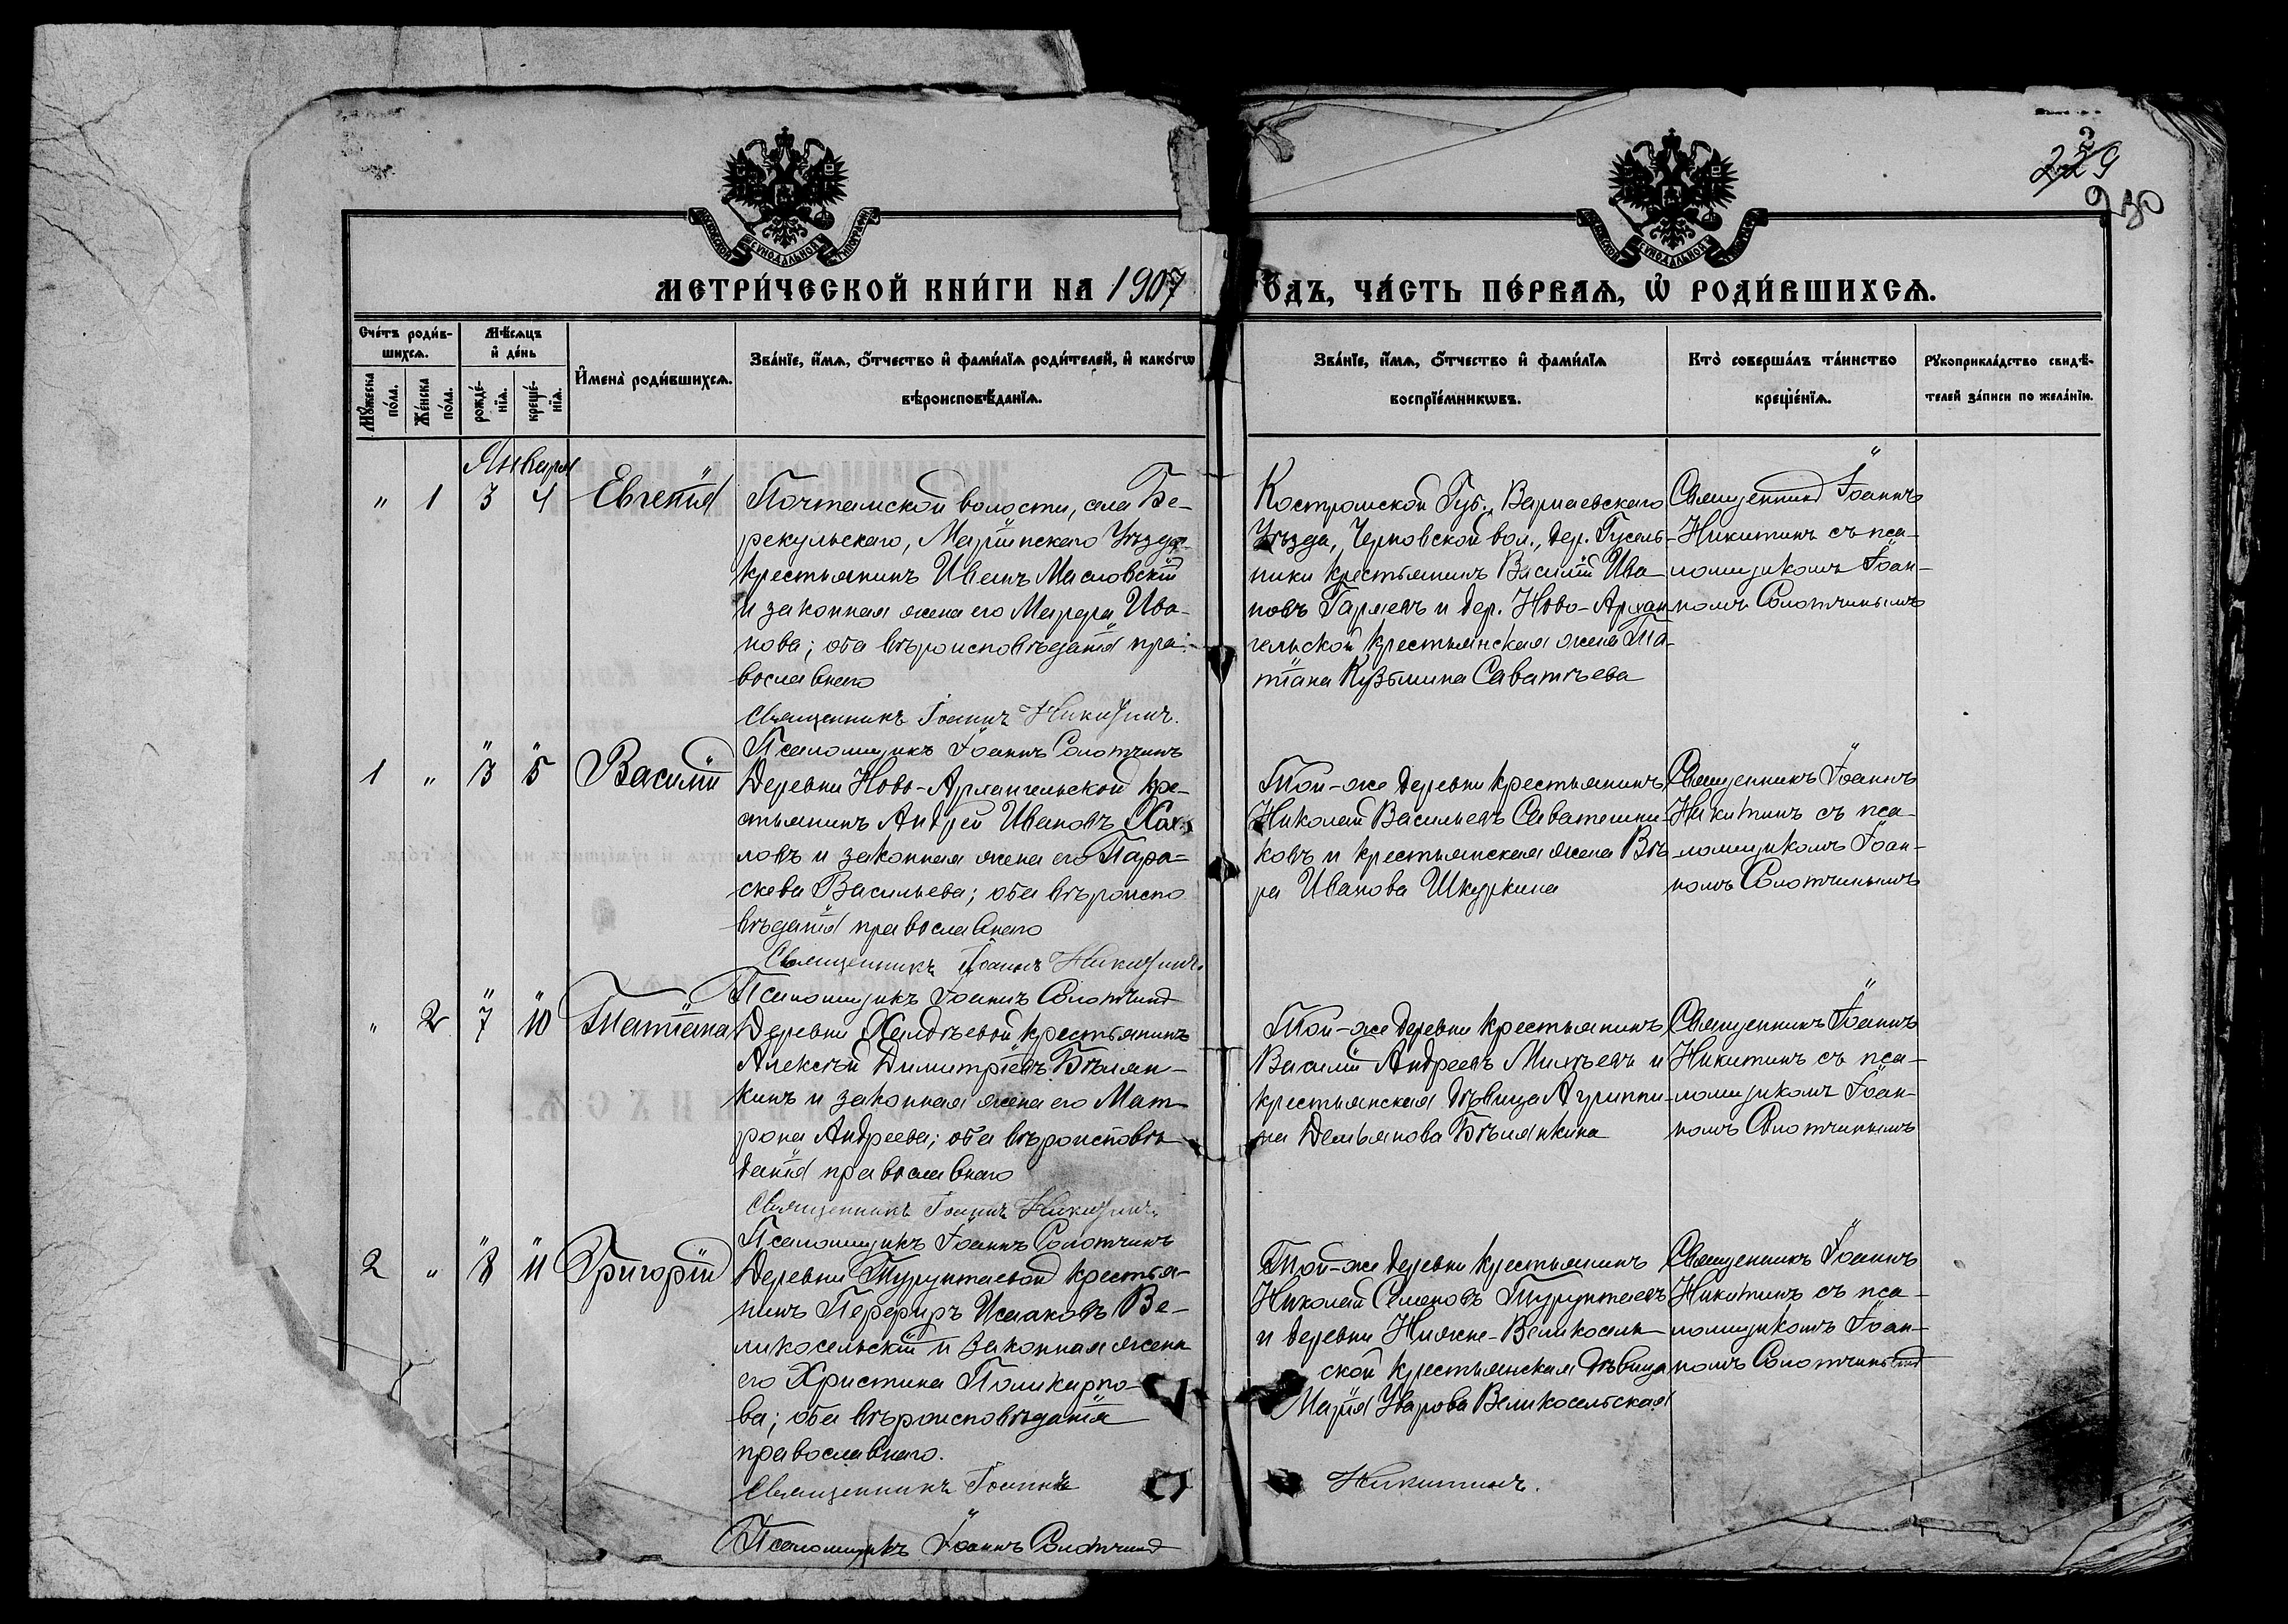 229
230
МЕТРИ́ЧЕСКОЙ КНИ́ГИ НА 1907
ГО́ДЪ, ЧА́СТЬ ПЕ́РВАѦ, Ѡ҆ РОДИ́ВШИХСѦ.
Сче́тъ роди́в-
шихсѧ.
Мѣ́сѧцъ
и҆ де́нь
Мꙋ́жеска по́ла.
Же́нска по́ла.
рожде́-нїѧ.
креще́-нїѧ.
И҆мена̀ роди́вшихсѧ.
Зва́нїе, и҆́мѧ, ѻ҆́тчество и҆ фами́лїѧ роди́телей, и҆ како́гѡ
вѣроисповѣ́данїѧ.
Зва́нїе, и҆́мѧ, ѻ҆́тчество и҆ фами́лїѧ
воспрїе́мникѡвъ.
Кто̀ соверша́лъ та́инство
креще́нїѧ.
Рꙋкоприкла́дство свидѣ́-
телей за́писи по жела́нїю.
Января
" 1 3 4 Евгенія
Почтамской волости, села Бе-
рекульскаго, Маріинскаго Уѣзда
крестьянинъ Иванъ Масловскій
и законная жена его Марѳа Ива-
нова; оба вѣроисповѣданія пра-
вославнаго
Священникъ Іоаннъ Никитинъ.
Псаломщикъ Іоаннъ Солотчинъ
Костромской Губ., Варнавскаго
Уѣзда, Черновской вол., дер. Гусель-
ники крестьянинъ Василій Ива-
новъ Гаряевъ и дер. Ново-Архан-
гельской крестьянская жена Та-
тіана Кузьмина Саватѣева
Священникъ Іоаннъ
Никитинъ съ пса-
ломщикомъ Іоан-
номъ Солотчинымъ
1 " 3 5 Василій
Деревни Ново-Архангельской кре-
стьянинъ Андрей Ивановъ
ловъ и законная жена его Пара-
скева Васильева; оба вѣроиспо
вѣданія православнаго
Священникъ Іоаннъ Никитинъ.
Псаломщикъ Іоаннъ Солотчинъ
Той-же деревни крестьянинъ
Николай Васильевъ
ковъ и крестьянская жена Вѣ-
ра Иванова Шкуркина
Священникъ Іоаннъ
Никитинъ съ пса-
ломщикомъ Іоан-
номъ Солотчинымъ
" 2 7 10 Татіана
Деревни Халдѣевой крестьянинъ
Алексѣй Димитріевъ Бѣлян-
кинъ и законная жена его Мат-
рона Андреева; оба вѣроисповѣ-
данія православнаго
Священникъ Іоаннъ Никитинъ.
Псаломщикъ Іоаннъ Солотчинъ
Той-же деревни крестьянинъ
Василій Андреевъ и
крестьянская дѣвица Агриппи-
на Демьянова Бѣлянкина
Священникъ Іоаннъ
Никитинъ съ пса-
ломщикомъ Іоан-
номъ Солотчинымъ
2 " 8 11 Григорій
Деревни Турунтаевой крестья-
нинъ Перфиръ Исааковъ Ве-
ликосельскій и законная жена
его Христина Поликарпо-
ва; оба вѣроисповѣданія
православнаго.
Священникъ Іоаннъ Никитинъ.
Псаломщикъ Іоаннъ Солотчинъ
Той-же деревни крестьянинъ
Николай Семеновъ Турунтаевъ
и деревни Нижне-Великосель-
ской крестьянская дѣвица
Марія Уварова Великосельская
Священникъ Іоаннъ
Никитинъ съ пса-
ломщикомъ Іоан-
номъ Солотчинымъ